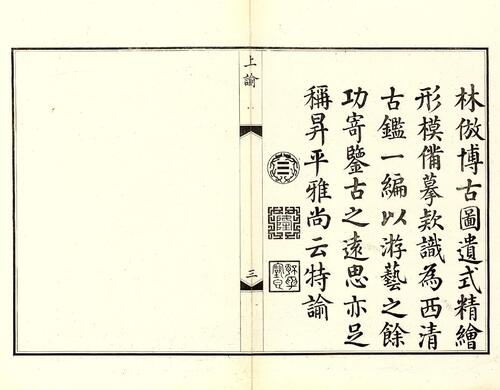 林倣博古圖遺式精繪
形模備摹欵識為西清
古鑑一編以游藝之餘
功寄鑒古之遠思亦足
稱昇平雅尚云特諭
上諭
三